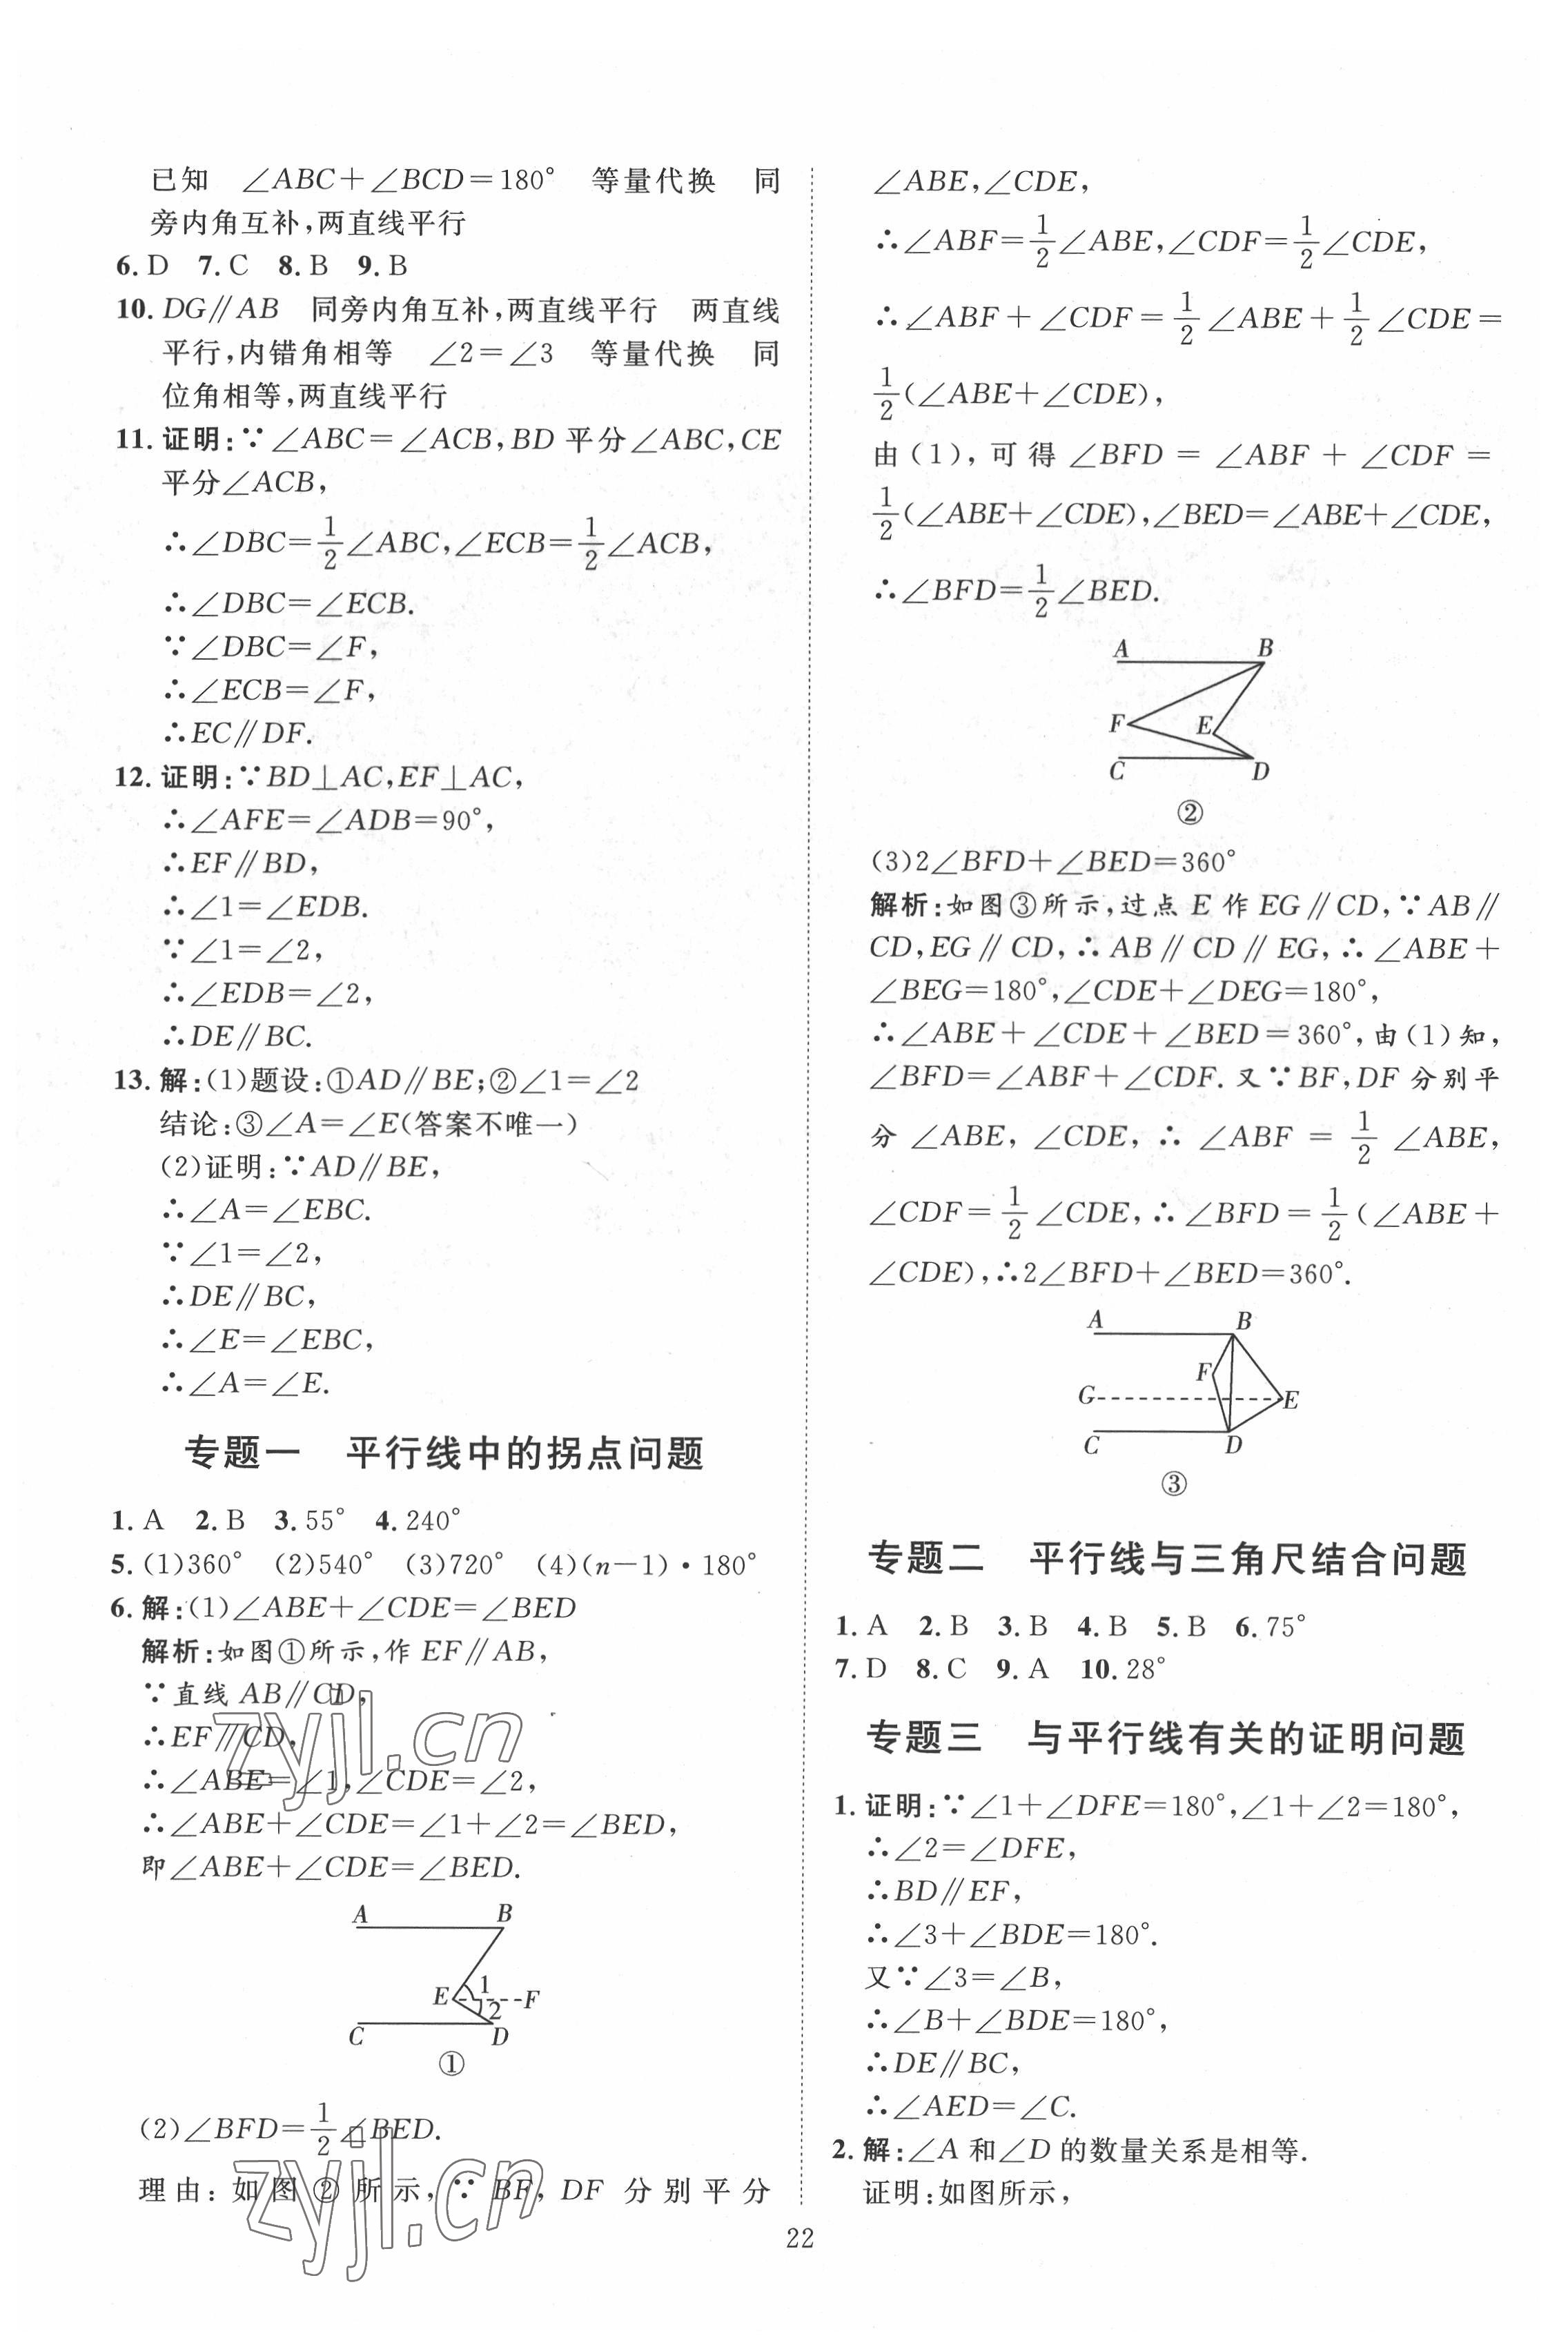 已知　∠ABC+∠BCD=180°　等量代换　同
旁内角互补,两直线平行
6. D　7. C　8. B　9. B
10. DG∥AB　同旁内角互补,两直线平行　两直线
平行,内错角相等　∠2=∠3　等量代换　同
位角相等,两直线平行
11. 证明:∵∠ABC=∠ACB,BD 平分∠ABC,CE
平分∠ACB,
∴∠DBC=1/2∠ABC,∠ECB=1/2∠ACB,
∴∠DBC=∠ECB.
∵∠DBC=∠F,
∴∠ECB=∠F,
∴EC∥DF.
12. 证明:∵BD⊥AC,EF⊥AC,
∴∠AFE=∠ADB=90°,
∴EF∥BD,
∴∠1=∠EDB.
∵∠1=∠2,
∴∠EDB=∠2,
∴DE∥BC.
13. 解:(1)题设:①AD∥BE;②∠1=∠2
结论:③∠A=∠E(答案不唯一)
(2)证明:∵AD∥BE,
∴∠A=∠EBC.
∵∠1=∠2,
∴DE∥BC,
∴∠E=∠EBC,
∴∠A=∠E.
专题一　平行线中的拐点问题
1. A　2. B　3. 55°　4. 240°
5. (1)360°　(2)540°　(3)720°　(4)(n-1)·180°
6. 解:(1)∠ABE+∠CDE=∠BED
解析:如图①所示,作 EF∥AB,
∵直线 AB∥CD,
∴EF∥CD,
∴∠ABE=∠1,∠CDE=∠2,
∴∠ABE+∠CDE=∠1+∠2=∠BED,
即∠ABE+∠CDE=∠BED.
A B
E 1 F
2
C D
①
(2)∠BFD=1/2∠BED.
理由:如图②所示,∵BF,DF 分别平分
∠ABE,∠CDE,
∴∠ABF=1/2∠ABE,∠CDF=1/2∠CDE,
∴∠ABF+∠CDF=1/2∠ABE+1/2∠CDE=
1/2(∠ABE+∠CDE),
由(1),可得∠BFD=∠ABF+∠CDF=
1/2(∠ABE+∠CDE),∠BED=∠ABE+∠CDE,
∴∠BFD=1/2∠BED.
A B
F E
C D
②
(3)2∠BFD+∠BED=360°
解析:如图③所示,过点 E 作 EG∥CD,∵AB∥
CD,EG∥CD,∴AB∥CD∥EG,∴∠ABE+
∠BEG=180°,∠CDE+∠DEG=180°,
∴∠ABE+∠CDE+∠BED=360°,由(1)知,
∠BFD=∠ABF+∠CDF. 又∵BF,DF 分别平
分∠ABE,∠CDE,∴∠ABF=1/2∠ABE,
∠CDF=1/2∠CDE,∴∠BFD=1/2(∠ABE+
∠CDE),∴2∠BFD+∠BED=360°.
A B
F
G E
C D
③
专题二　平行线与三角尺结合问题
1. A　2. B　3. B　4. B　5. B　6. 75°
7. D　8. C　9. A　10. 28°
专题三　与平行线有关的证明问题
1. 证明:∵∠1+∠DFE=180°,∠1+∠2=180°,
∴∠2=∠DFE,
∴BD∥EF,
∴∠3+∠BDE=180°.
又∵∠3=∠B,
∴∠B+∠BDE=180°,
∴DE∥BC,
∴∠AED=∠C.
2. 解:∠A 和∠D 的数量关系是相等.
证明:如图所示,
22
zyjl.cn
zyjl.cn